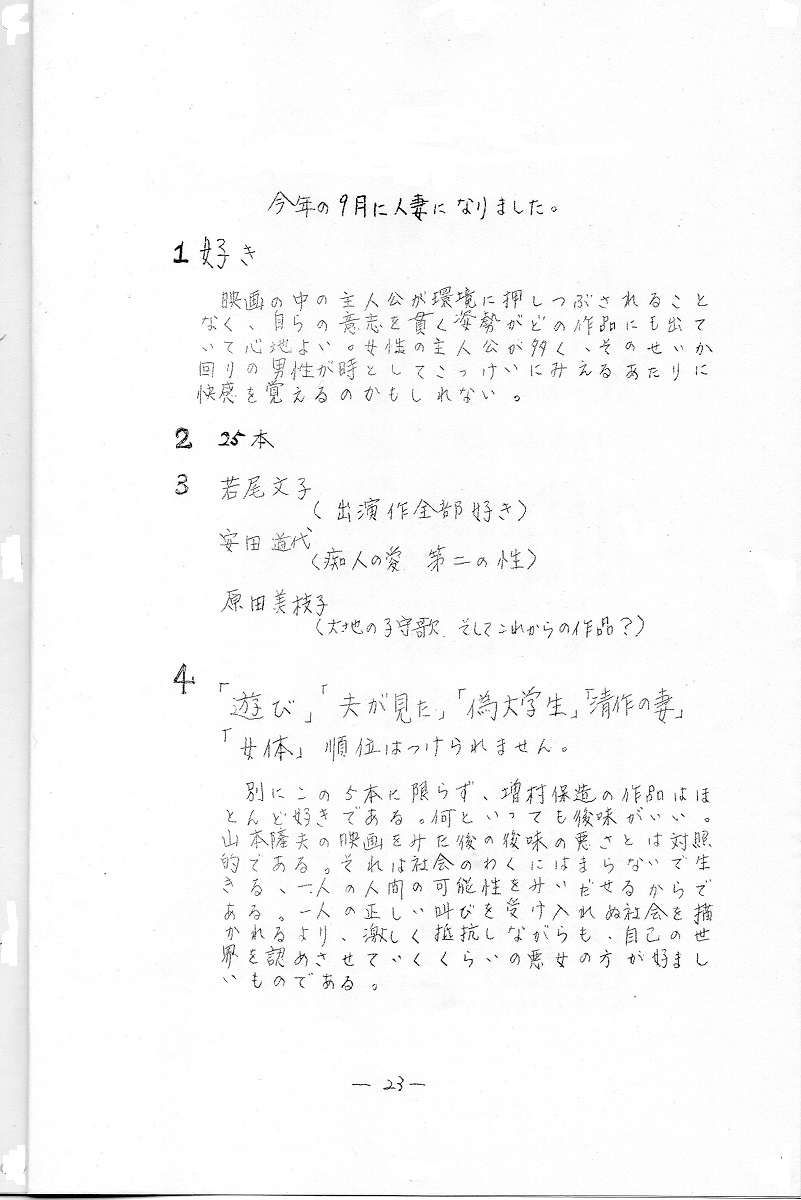 今年の9月に人妻になりました。
1 好き
映画の中の主人公が環境に押しつぶされること
なく、自らの意志を貫く姿勢がどの作品にも出て
いて心地よい。女性の主人公が多く、そのせいか
回りの男性が時としてこっけいにみえるあたりに
快感を覚えるのかもしれない。
2 25本
3 若尾文子
(出演作全部好き)
安田道代
(痴人の愛 第二の性)
原田美枝子
(大地の子守歌 そしてこれからの作品?)
4 「遊び」「夫が見た」「偽大学生」「清作の妻」
「女体」順位はつけられません。
別にこの5本に限らず、増村保造の作品はほ
とんど好きである。何といっても後味がいい。
山本薩夫の映画をみた後の後味の悪さとは対照
的である。それは社会のわくにはまらないで生
きる、一人の人間の可能性をみいだせるからで
ある。一人の正しい叫びを受け入れぬ社会を描
かれるより、激しく抵抗しながらも、自己の世
界を認めさせていくくらいの悪女の方が好まし
いものである。
— 23 —